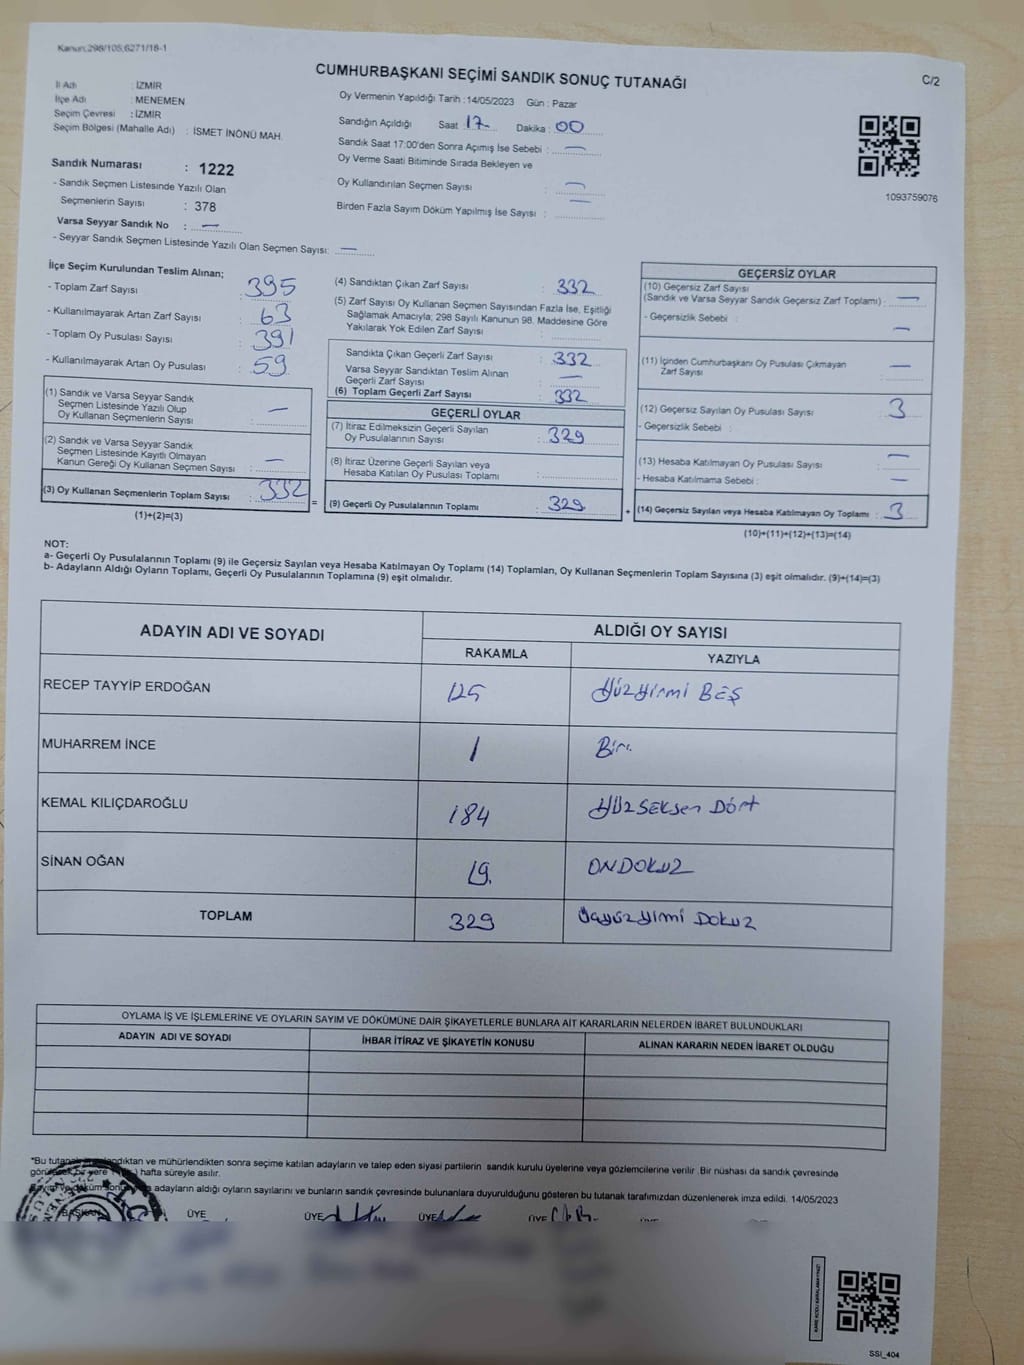 Kanun;298/105;6271/18-1
CUMHURBAŞKANI SEÇİMİ SANDIK SONUÇ TUTANAĞI
C/2
İl Adı : İZMİR
İlçe Adı : MENEMEN
Seçim Çevresi : İZMİR
Seçim Bölgesi (Mahalle Adı) : İSMET İNÖNÜ MAH.
Sandık Numarası : 1222
- Sandık Seçmen Listesinde Yazılı Olan
Seçmenlerin Sayısı : 378
Varsa Seyyar Sandık No : —
- Seyyar Sandık Seçmen Listesinde Yazılı Olan Seçmen Sayısı: —
Oy Vermenin Yapıldığı Tarih :14/05/2023 Gün : Pazar
Sandığın Açıldığı Saat 17 Dakika : 00
Sandık Saat 17:00'den Sonra Açımış İse Sebebi : —
Oy Verme Saati Bitiminde Sırada Bekleyen ve
Oy Kullandırılan Seçmen Sayısı : —
Birden Fazla Sayım Döküm Yapılmış İse Sayısı : —
1093759076
İlçe Seçim Kurulundan Teslim Alınan;
- Toplam Zarf Sayısı : 395
- Kullanılmayarak Artan Zarf Sayısı : 63
- Toplam Oy Pusulası Sayısı : 391
- Kullanılmayarak Artan Oy Pusulası : 59
(1) Sandık ve Varsa Seyyar Sandık
Seçmen Listesinde Yazılı Olup
Oy Kullanan Seçmenlerin Sayısı : —
(2) Sandık ve Varsa Seyyar Sandık
Seçmen Listesinde Kayıtlı Olmayan
Kanun Gereği Oy Kullanan Seçmen Sayısı : —
(3) Oy Kullanan Seçmenlerin Toplam Sayısı : 332
(1)+(2)=(3)
=
(4) Sandıktan Çıkan Zarf Sayısı : 332
(5) Zarf Sayısı Oy Kullanan Seçmen Sayısından Fazla İse, Eşitliği
Sağlamak Amacıyla; 298 Sayılı Kanunun 98. Maddesine Göre
Yakılarak Yok Edilen Zarf Sayısı :
Sandıkta Çıkan Geçerli Zarf Sayısı : 332
Varsa Seyyar Sandıktan Teslim Alınan
Geçerli Zarf Sayısı : —
(6) Toplam Geçerli Zarf Sayısı : 332
GEÇERLİ OYLAR
(7) İtiraz Edilmeksizin Geçerli Sayılan
Oy Pusulalarının Sayısı : 329
(8) İtiraz Üzerine Geçerli Sayılan veya
Hesaba Katılan Oy Pusulası Toplamı :
(9) Geçerli Oy Pusulalarının Toplamı : 329
+
GEÇERSİZ OYLAR
(10) Geçersiz Zarf Sayısı
(Sandık ve Varsa Seyyar Sandık Geçersiz Zarf Toplamı) : —
- Geçersizlik Sebebi : —
(11) İçinden Cumhurbaşkanı Oy Pusulası Çıkmayan
Zarf Sayısı : —
(12) Geçersiz Sayılan Oy Pusulası Sayısı : 3
- Geçersizlik Sebebi :
(13) Hesaba Katılmayan Oy Pusulası Sayısı : —
- Hesaba Katılmama Sebebi : —
(14) Geçersiz Sayılan veya Hesaba Katılmayan Oy Toplamı : 3
(10)+(11)+(12)+(13)=(14)
NOT:
a- Geçerli Oy Pusulalarının Toplamı (9) ile Geçersiz Sayılan veya Hesaba Katılmayan Oy Toplamı (14) Toplamları, Oy Kullanan Seçmenlerin Toplam Sayısına (3) eşit olmalıdır. (9)+(14)=(3)
b- Adayların Aldığı Oyların Toplamı, Geçerli Oy Pusulalarının Toplamına (9) eşit olmalıdır.
ADAYIN ADI VE SOYADI ALDIĞI OY SAYISI
RAKAMLA YAZIYLA
RECEP TAYYİP ERDOĞAN 125 YüzYirmi BEŞ
MUHARREM İNCE 1 Bir.
KEMAL KILIÇDAROĞLU 184 YÜZSEKSEn DÖrt
SİNAN OĞAN 19. ONDOKUZ
TOPLAM 329 ÜçyüzYirmi Dokuz
OYLAMA İŞ VE İŞLEMLERİNE VE OYLARIN SAYIM VE DÖKÜMÜNE DAİR ŞİKAYETLERLE BUNLARA AİT KARARLARIN NELERDEN İBARET BULUNDUKLARI
ADAYIN ADI VE SOYADI İHBAR İTİRAZ VE ŞİKAYETİN KONUSU ALINAN KARARIN NEDEN İBARET OLDUĞU
*Bu tutanak mühürlendikten sonra seçime katılan adayların ve talep eden siyasi partilerin sandık kurulu üyelerine veya gözlemcilerine verilir .Bir nüshası da sandık çevresinde
hafta süreyle asılır.
adayların aldığı oyların sayılarını ve bunların sandık çevresinde bulunanlara duyurulduğunu gösteren bu tutanak tarafımızdan düzenlenerek imza edildi. 14/05/2023
BAŞKAN ÜYE ÜYE ÜYE ÜYE
SSİ_404